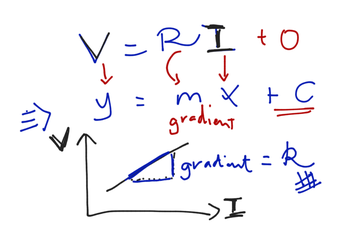 V = R I + 0
y = m x + C
gradient
V
gradient = R
I